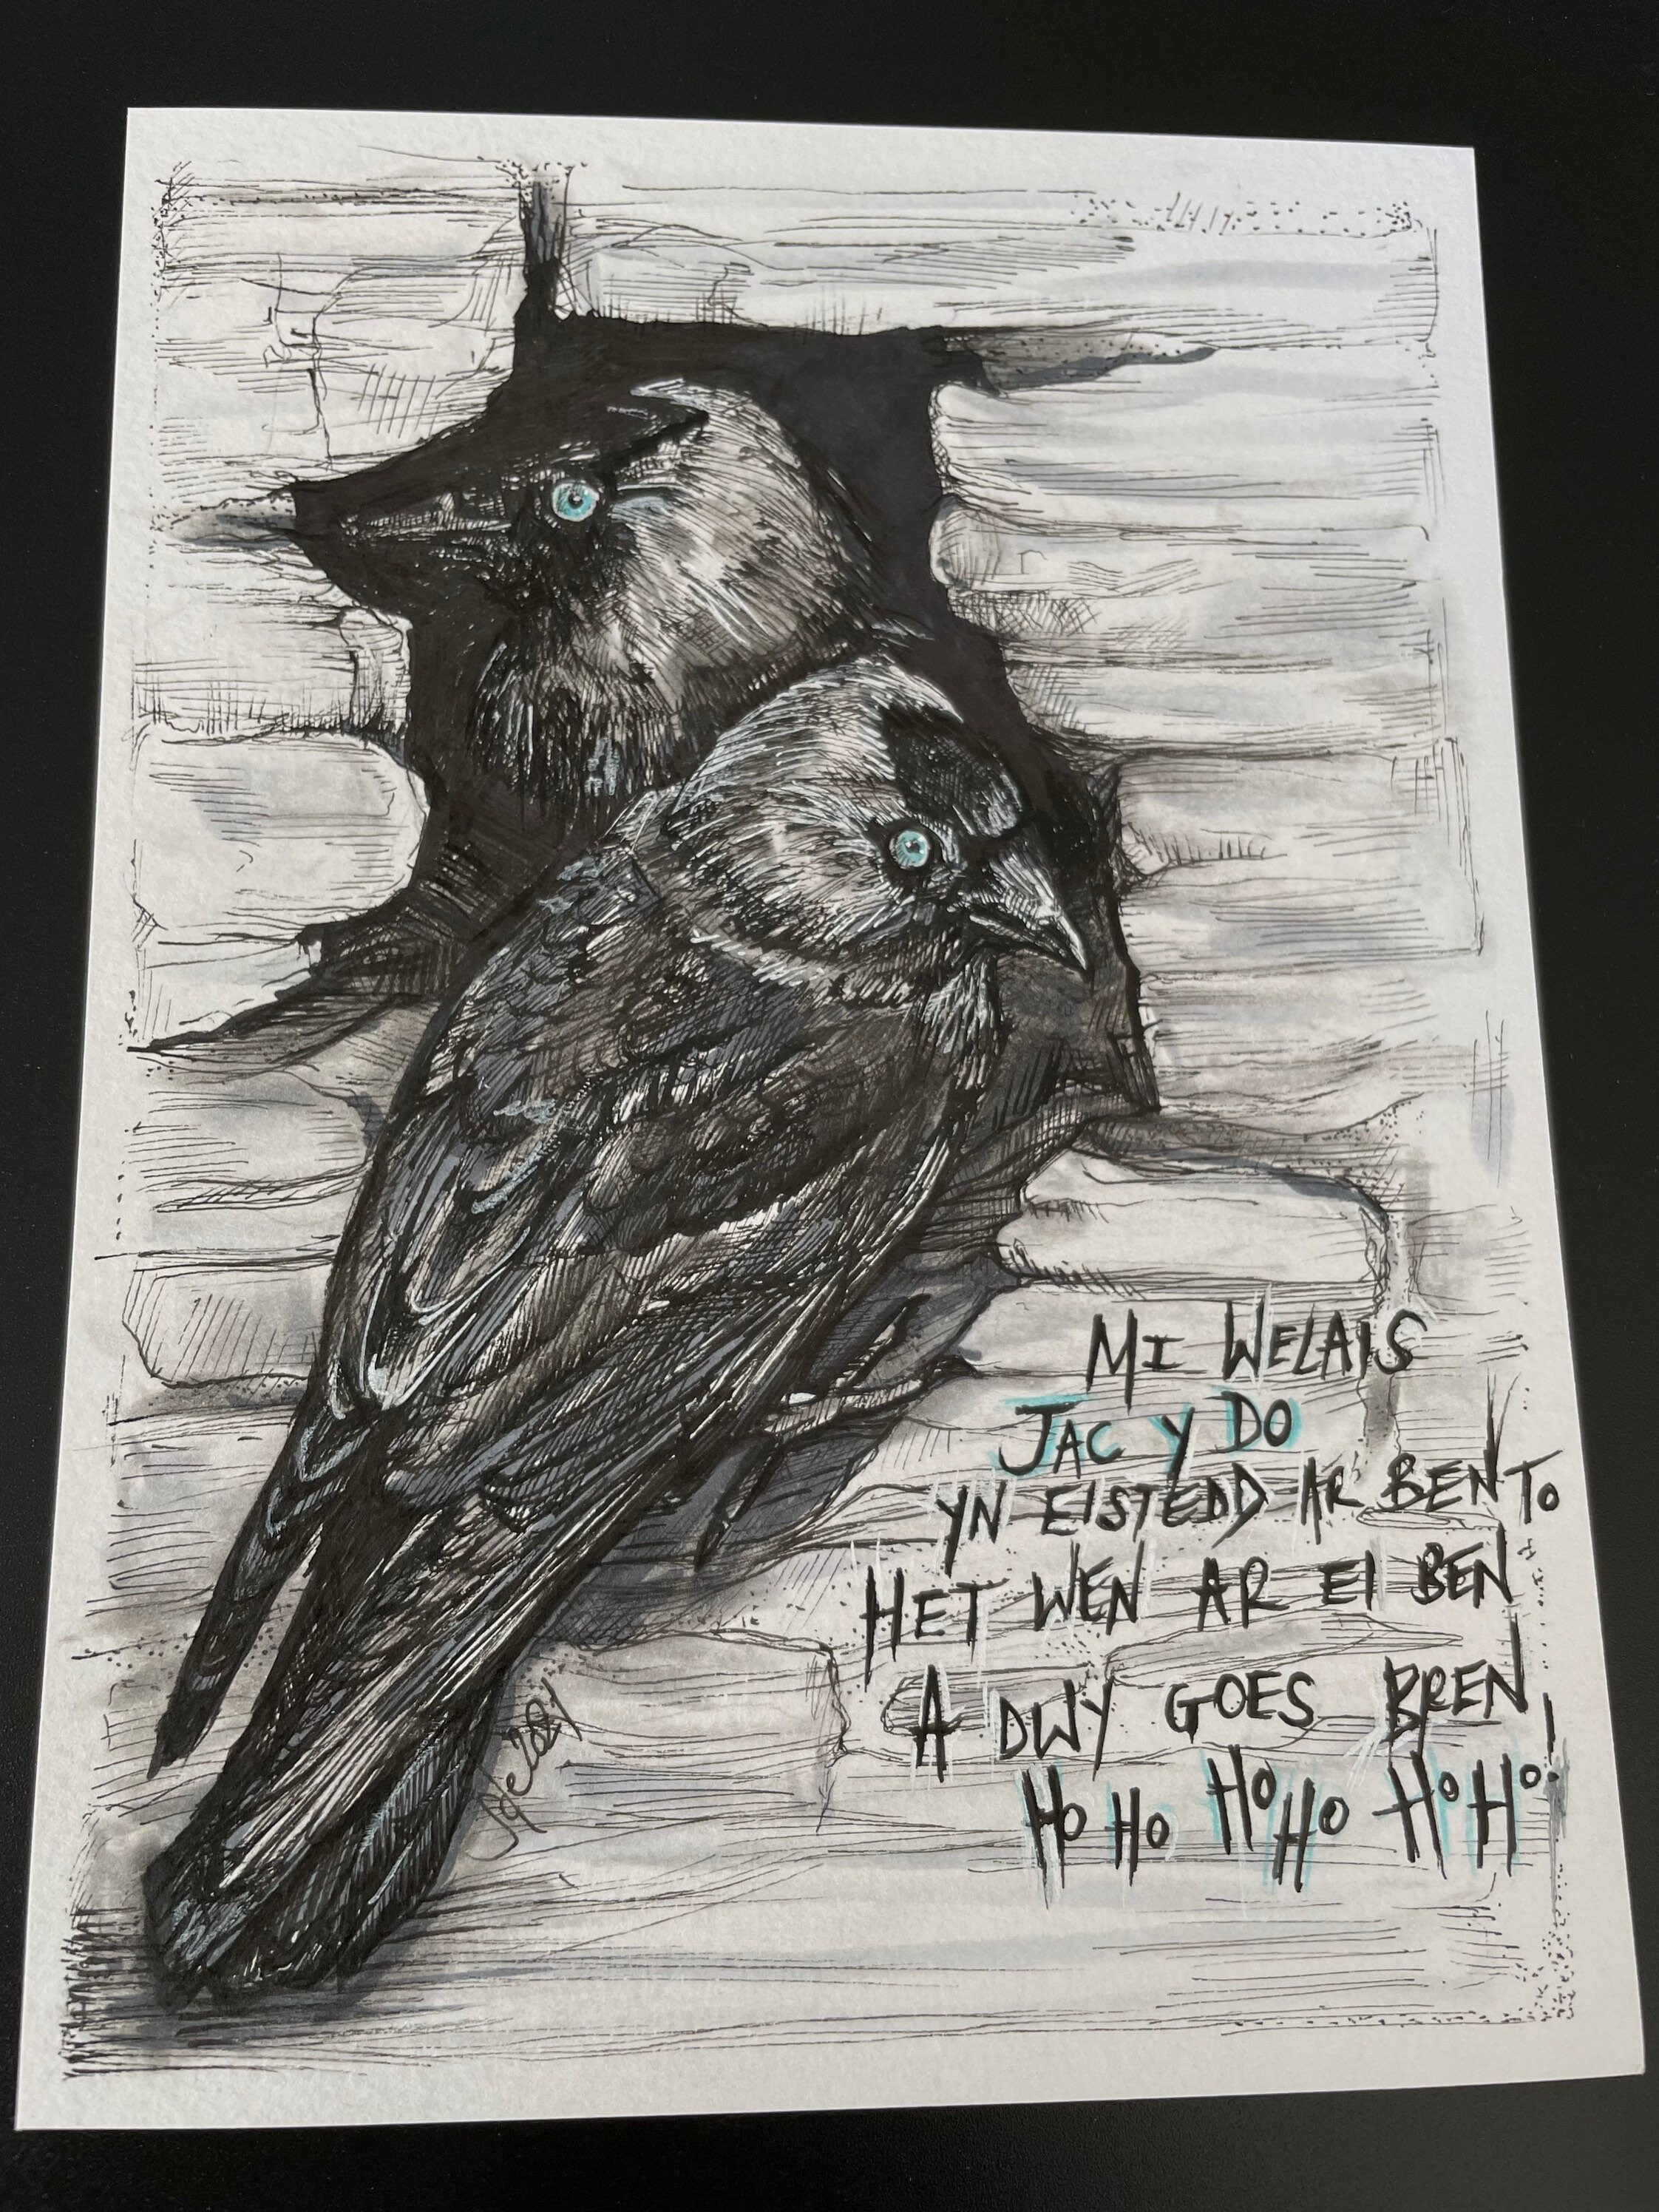 MI WELAIS
JAC Y DO
YN EISTEDD AR BEN TO
HET WEN AR EI BEN
A DWY GOES BREN
HO HO HO HO HO HO.